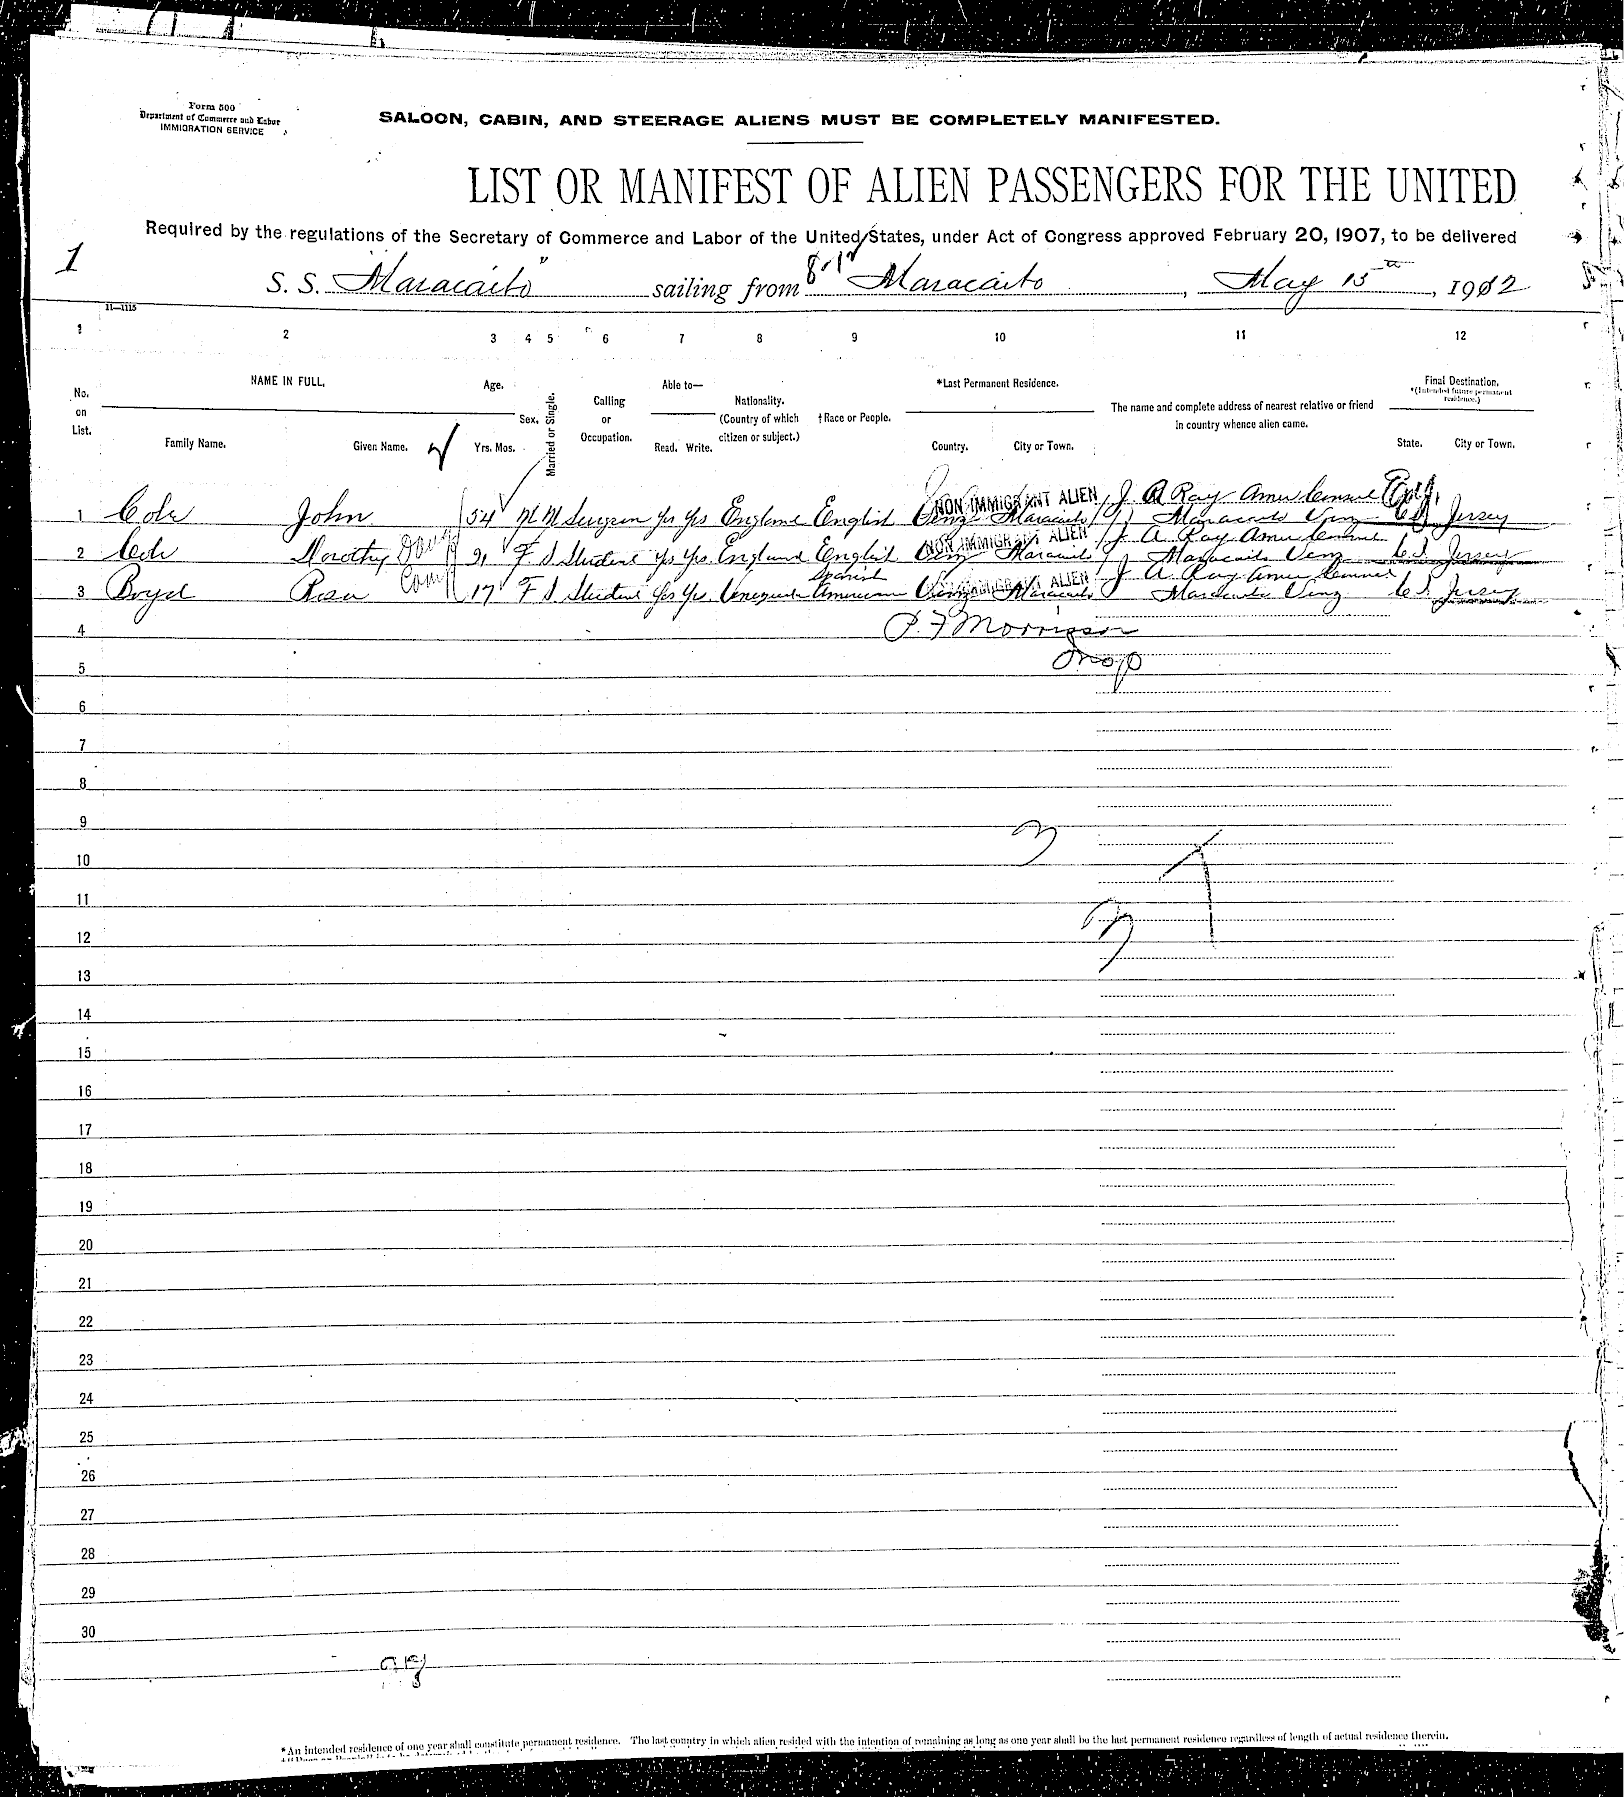 Form 500
Department of Commerce and Labor
IMMIGRATION SERVICE
SALOON, CABIN, AND STEERAGE ALIENS MUST BE COMPLETELY MANIFESTED.
LIST OR MANIFEST OF ALIEN PASSENGERS FOR THE UNITED
Required by the regulations of the Secretary of Commerce and Labor of the United States, under Act of Congress approved February 20, 1907, to be delivered
1
S. S. "Maracaibo" sailing from Maracaibo, May 15th, 1912
11—1115
1 2 3 4 5 6 7 8 9 10 11 12
No. on List.
NAME IN FULL.
Family Name. Given Name.
Age.
Yrs. Mos.
Sex.
Married or Single.
Calling or Occupation.
Able to—
Read. Write.
Nationality. (Country of which citizen or subject.)
†Race or People.
*Last Permanent Residence.
Country. City or Town.
The name and complete address of nearest relative or friend in country whence alien came.
Final Destination.
*(Intended future permanent residence.)
State. City or Town.
NON IMMIGRANT ALIEN J. A Ray Amer Consul
1 Cole John 54 M M Surgeon Yes Yes England English Venz Maracaibo Maracaibo Venz Jersey
NON IMMIGRANT ALIEN J. A. Ray Amer Consul
2 Cole Dorothy Dau 21 F S Student Yes Yes England English Venz Maracaibo Maracaibo Venz Jersey
Spanish NON IMMIGRANT ALIEN J. A. Ray Amer Consul
3 Boyd Rosa 17 F S Student Yes Yes Venezuela American Venz Maracaibo Maracaibo Venz Jersey
4 P. F Morrison
5
6
7
8
9
10
11
12
13
14
15
16
17
18
19
20
21
22
23
24
25
26
27
28
29
30
*An intended residence of one year shall constitute permanent residence. The last country in which alien resided with the intention of remaining as long as one year shall be the last permanent residence regardless of length of actual residence therein.